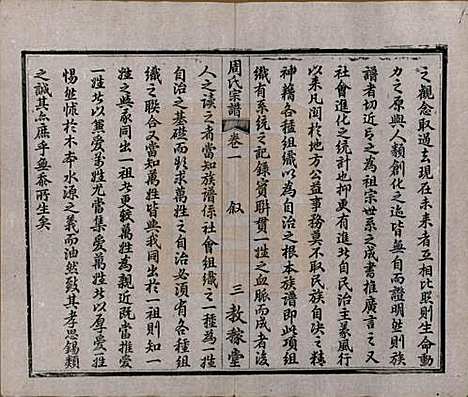 之觀念取過去現在未來者互相比照則生命動
力之原與人類創化之迹皆無自而證明然則族
譜者切近言之為祖宗世系之成書推廣言之又
社會進化之統計也抑更有進者自民治主暴風行
以來凡関於地方公益事務莫不取民族自决之精
神藉各種組織以為自治之根本族譜即此項組
織有系統之記錄實聯貫一姓之血脈而成者後
周氏宗譜
卷一
叙
三
教稼堂
人之讀之者當知族譜係社會組織之一種為一姓
自治之基礎而類求萬姓之自治必須有各一姓組
織之聯合又當知萬姓皆與我同出於一祖則知一
姓之與承同出一祖者更較萬姓為親近既當推愛
一姓者以兼愛萬姓尤當集愛萬姓者以厚愛一姓
惕然悚於木本水源之義而油然致其孝思錫類
之誠其亦庶乎無忝所生矣